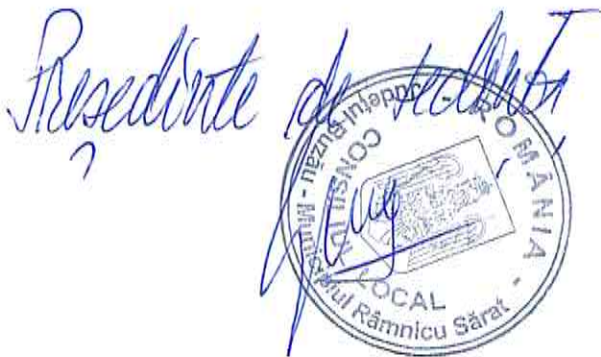 Președinte de ședință
ROMÂNIA
Județul Buzău - Municipiul Râmnicu Sărat
CONSILIUL LOCAL